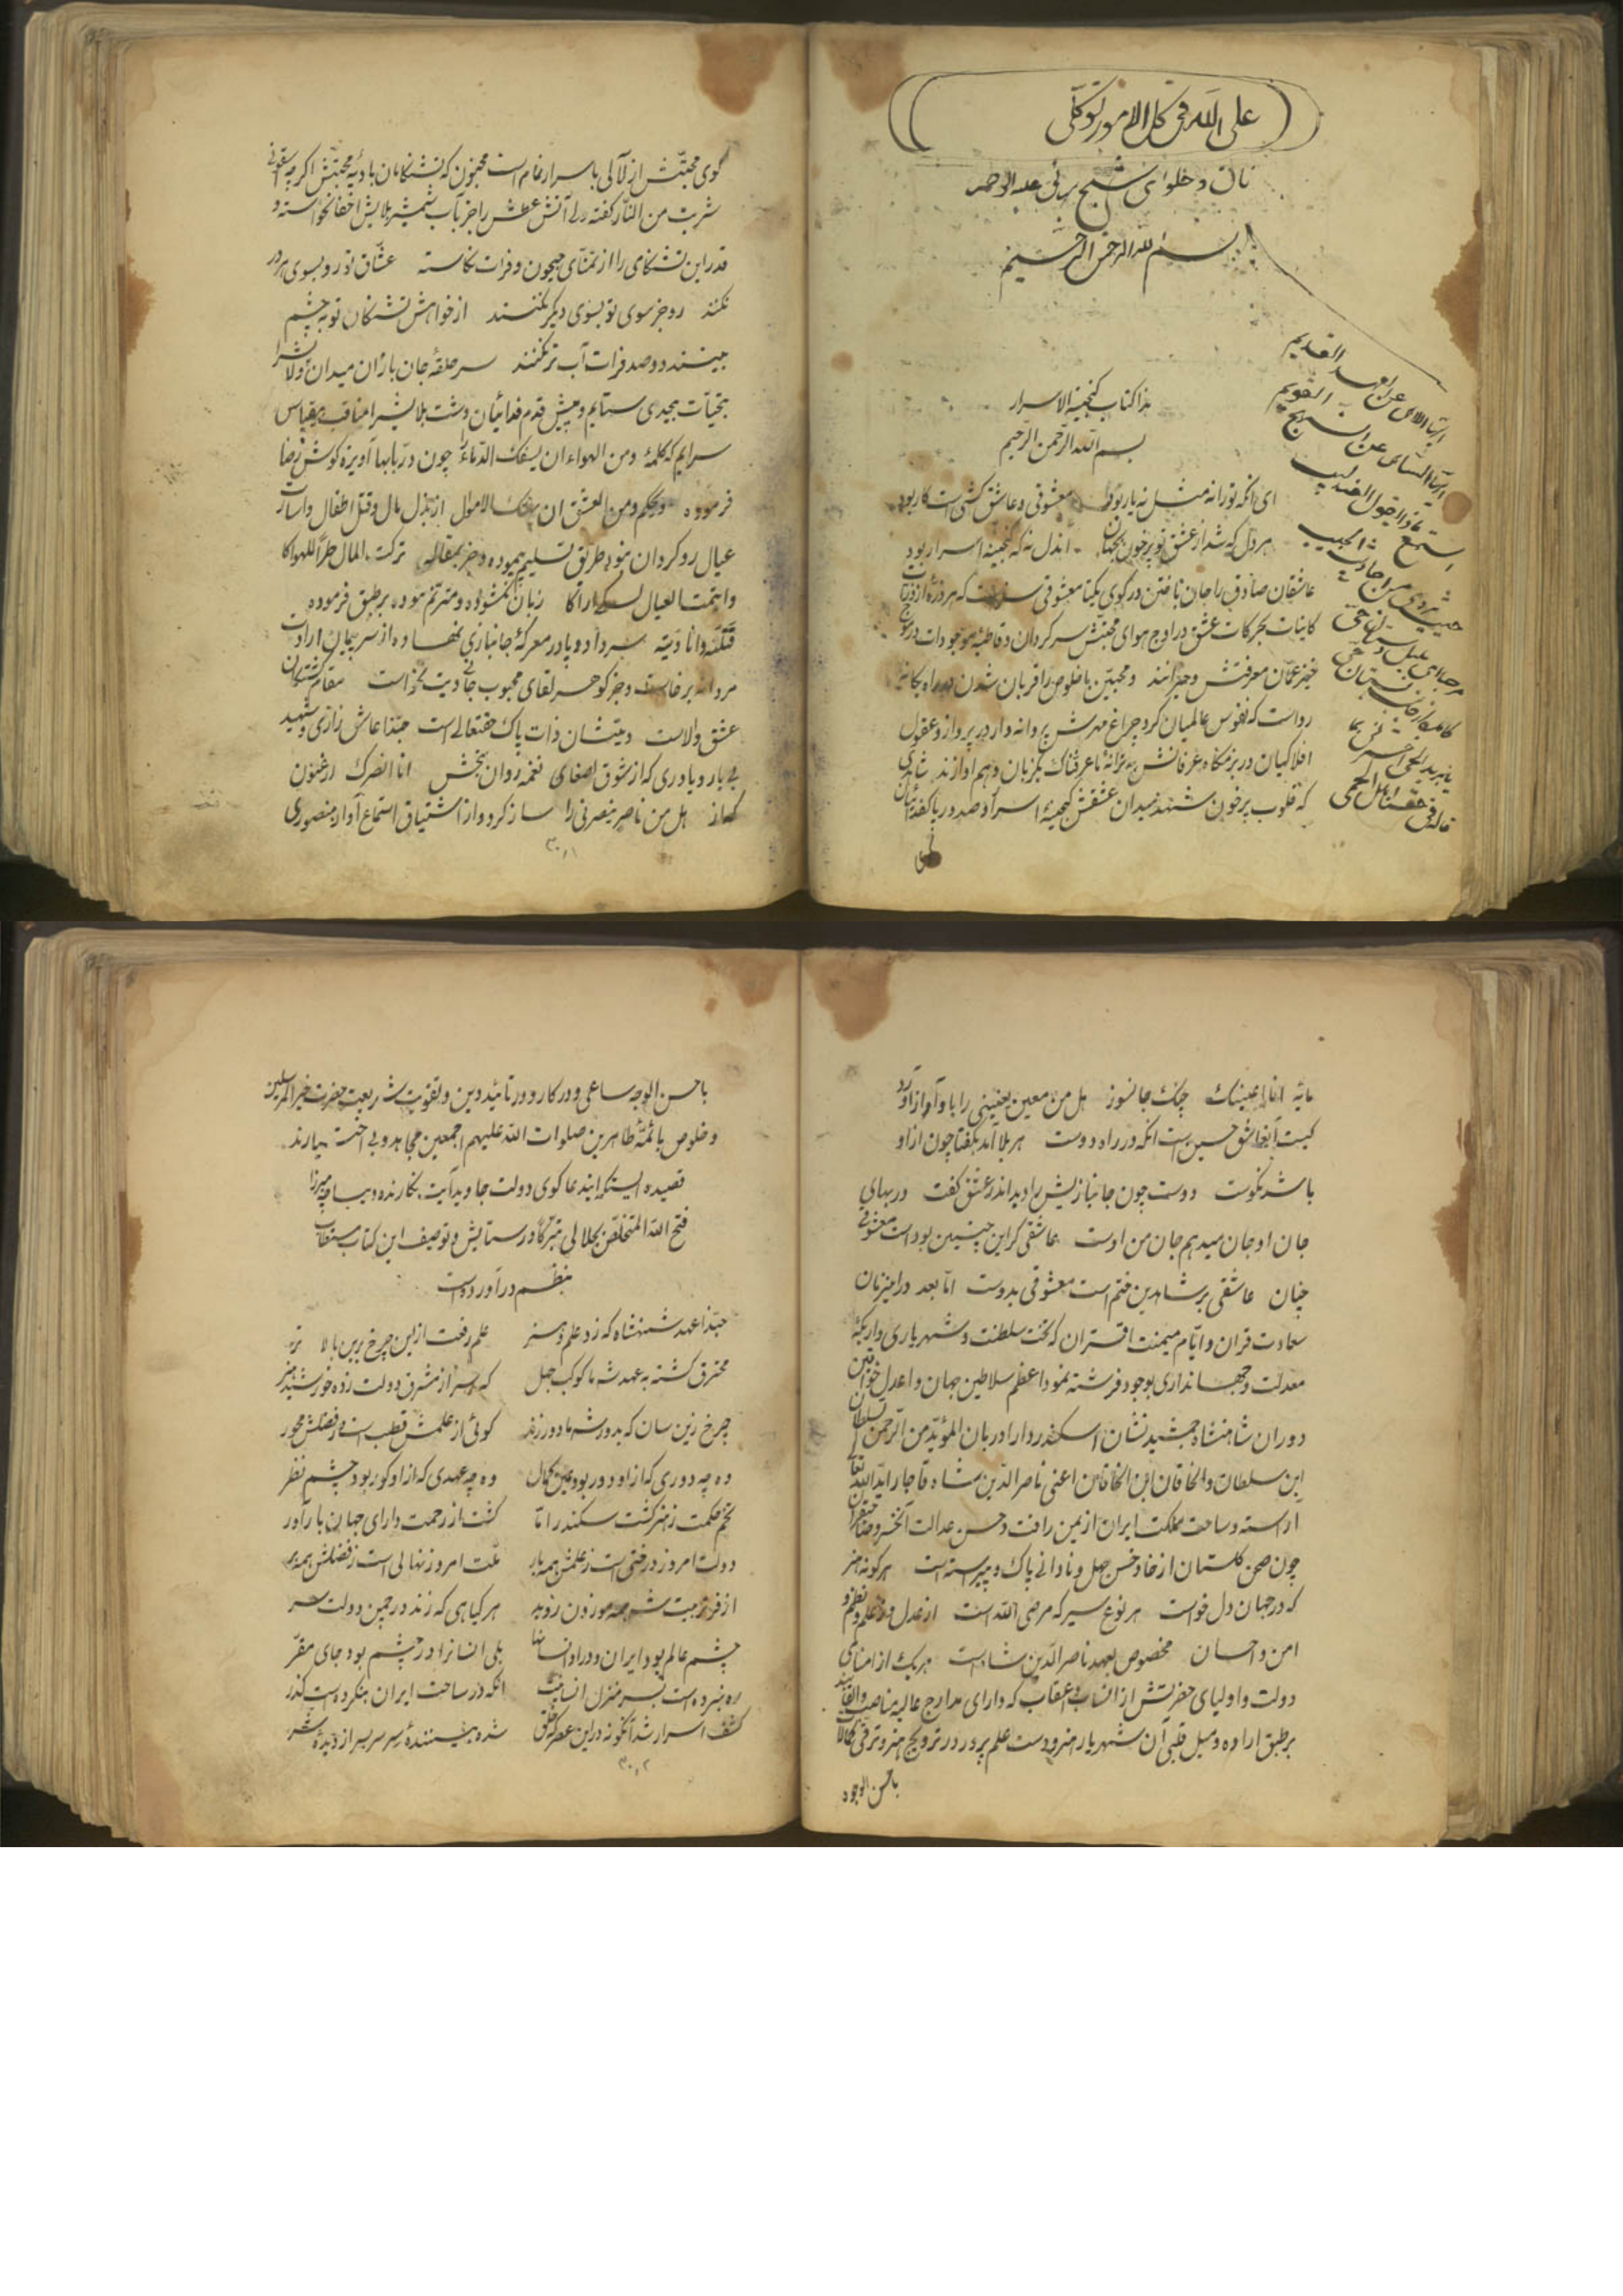 علی الله فی کل الامور توکلی
نان و حلوای شیخ بهائی علیه الرحمه
بسم الله الرحمن الرحیم
ایها اللاهی عن العهد القدیم
ایها الساهی عن النهج القویم
استمع ماذا یقول العندلیب
حیث یروی من احادیث الحبیب
مرحبا ای بلبل دستان حی
کامدی از جانب بستان حی
یا برید الحی اخبرنی بما
قاله فی حقنا اهل الحمی
هذا کتاب گنجینة الاسرار
بسم الله الرحمن الرحیم
ای آنکه تو را نه مثل نه یار بود معشوقی و عاشق کشیت کار بود
هر دل که شد از عشق تو پر خون بجهان آندل نه که گنجینه اسرار بود
عاشقان صادق را جان باختن در کوی یکتا معشوقی سزاست که هر ذره از ذرات
کاینات بحرکات عشق در اوج هوای محبتش سرگردان و قاطبهٔ موجودات در موج
خیز عمان معرفتش و حیرانند و محبین با خلوص را قربان شدن در راه یگانه
رواست که نفوس عالمیان گرد چراغ مهرش پروانه وار در پرواز و عقول
افلاکیان در بزمگاه عرفانش بترانهٔ ما عرفناک یکزبان و هم آوازند شاهدی
که قلوب پر خون شهید میدان عشقش گنجینهٔ اسرار و صدور پا کفدائیان
کوی محبتش از لآلی با سرار غم است مخزون که تشنکامان بادیهٔ محبتش اگر چه
شربت من النار گفته ولی آتش عطش را جز بآب شمشیر بلایش اطفا نخواسته و
قدر این تشنکامی را از تمنای جیحون و فرات نکاسته عشاق تو رو بسوی هر در
نکنند رو جز سوی تو بسوی دیگر نکنند از خواهش تشنگان تو به چشم
بینند دو صد فرات آب تر نکنند سر حلقهٔ جان بازان میدان ولا را
بتحیات بیحدی ستایم و پیش قدم فدائیان دشت بلا را مناقب بیقیاس
سرایم که کلمهٔ ومن الهواء ان یسفک الدماء را چون در بابها آویزه گوش رضا
فرموده و بحکم ومن العشق ان یهتک الاموال از بذل مال و قتل اطفال و اسارت
عیال رو گردان نبوده طریق تسلیم پیموده و جز بمقاله ترکت المال طرا لهواکا
وایتمت العیال لکی اراکا زبان نگشوده و مترنم نموده بر طبق فرموده
قتلته وانا دیته سر داد و پا در معرکهٔ جانبازی نهاده از سر پیمان ارادت
مردانه برخاست و جز گوهر لقای محبوب جانی دیت نخواست مقام کشتگان
عشق والاست دیتشان ذات پاک حقتعالی است حبذا عاشق زاری و شهید
بی یار و یاوری که از شوق اصغای نغمه روان بخش انا انصرک ارغنون
کهاز هل من ناصر ینصرنی را ساز کرد و از اشتیاق استماع آواز منصوری
۳۰٫۱
مایه انا اعینک چنگ جانسوز هل من معین یعیننی را با وا آواز آورد
کیست این عاشق حسین است آنکه در راه دوست هر بلا آمد بگفتا چون از او
باشد نکوست دوست چون جانبازیش را دید اندر عشق گفت در بهای
جان او جان میدهم جان من اوست عاشقی گر این چنین بوداست معشوقی
چنان عاشقی بر شاهدین ختم است معشوقی بدوست اما بعد در این زمان
سعادت قران و ایام میمنت اقتران که تخت سلطنت و شهریاری و اریکهٔ
معدلت و جهانداری بوجود فرشته نمود اعظم سلاطین جهان و اعدل خواقین
دوران شاهنشاه جمشید نشان اسکندر دارا دربان المؤید من الرحمن السلطان
ابن سلطان و الخاقان ابن الخاقان اعنی ناصر الدین شاه قاجار اید الله تعالی
آراسته و ساحت مملکت ایران از یمن رافت و حسن عدالت آنخسرو صاحبقران
چون صحن گلستان از خار و خس جهل و نادانی پاک و پیراسته است هر گونه هنر
که در جهان دل خواست هر نوع سیر که مرضی الله است از عدل و علم و نظم و
امن و احسان مخصوص بعهد ناصر الدین شاه است هر یک از امنای
دولت و اولیای حضرتش از انساب و اعقاب که دارای مدارج عالیه مناصب و القابند
بر طبق اراده و میل قلبی آن شهریار هنر دوست علم پرور در ترویج هنر و ترقی کمالات
باحسن الوجوه
باحسن الوجه ساعی و در کار و در تائید دین و تقویت شریعت حضرت خیر المرسلین
و خلوص بائمهٔ طاهرین صلوات الله علیهم اجمعین مجاهد و بی اختیارند
قصیده ایستکه ایندعا گوی دولت جاوید آیت نگارنده دیباچه میرزا
فتح الله المتخلص بجلالی تبرکا در ستایش و توصیف این کتاب مستطاب
بنظم در آورده است
حبذا عهد شهنشاه که زد علم و هنر علم رفعت ازین چرخ برین بالا تر
محترق گشته به عهد شه ما کوکب جهل که سر از مشرق دولت زده خورشید هنر
چرخ زین سان که بدور شه ما دور زند گوئی از علمش قطب است و ز فضلش محور
وه چه دوری که از او دور بود عین کمال وه چه عهدی که از او کور بود چشم نظر
تخم حکمت ز هنر گشت سکندر اما گشت از زحمت دارای جهان بارآور
دولت امروز درختی است ز علمش همه بار ملت امروز نهالی است ز فضلش همه بر
از فر تربیت شه همه موزون روید هر گیاهی که زند در چمن دولت سر
چشم عالم بود ایران و در او انسانها بلی انسانرا در چشم بود جای مقر
ره نبرده است بسر منزل انسانیت آنکه در ساحت ایران بنکرده است گذر
کشف اسرار شد آنگونه در این عصر که خلق شده بینندهٔ سر سربسر از دیدهٔ سر
۳۰٫۲